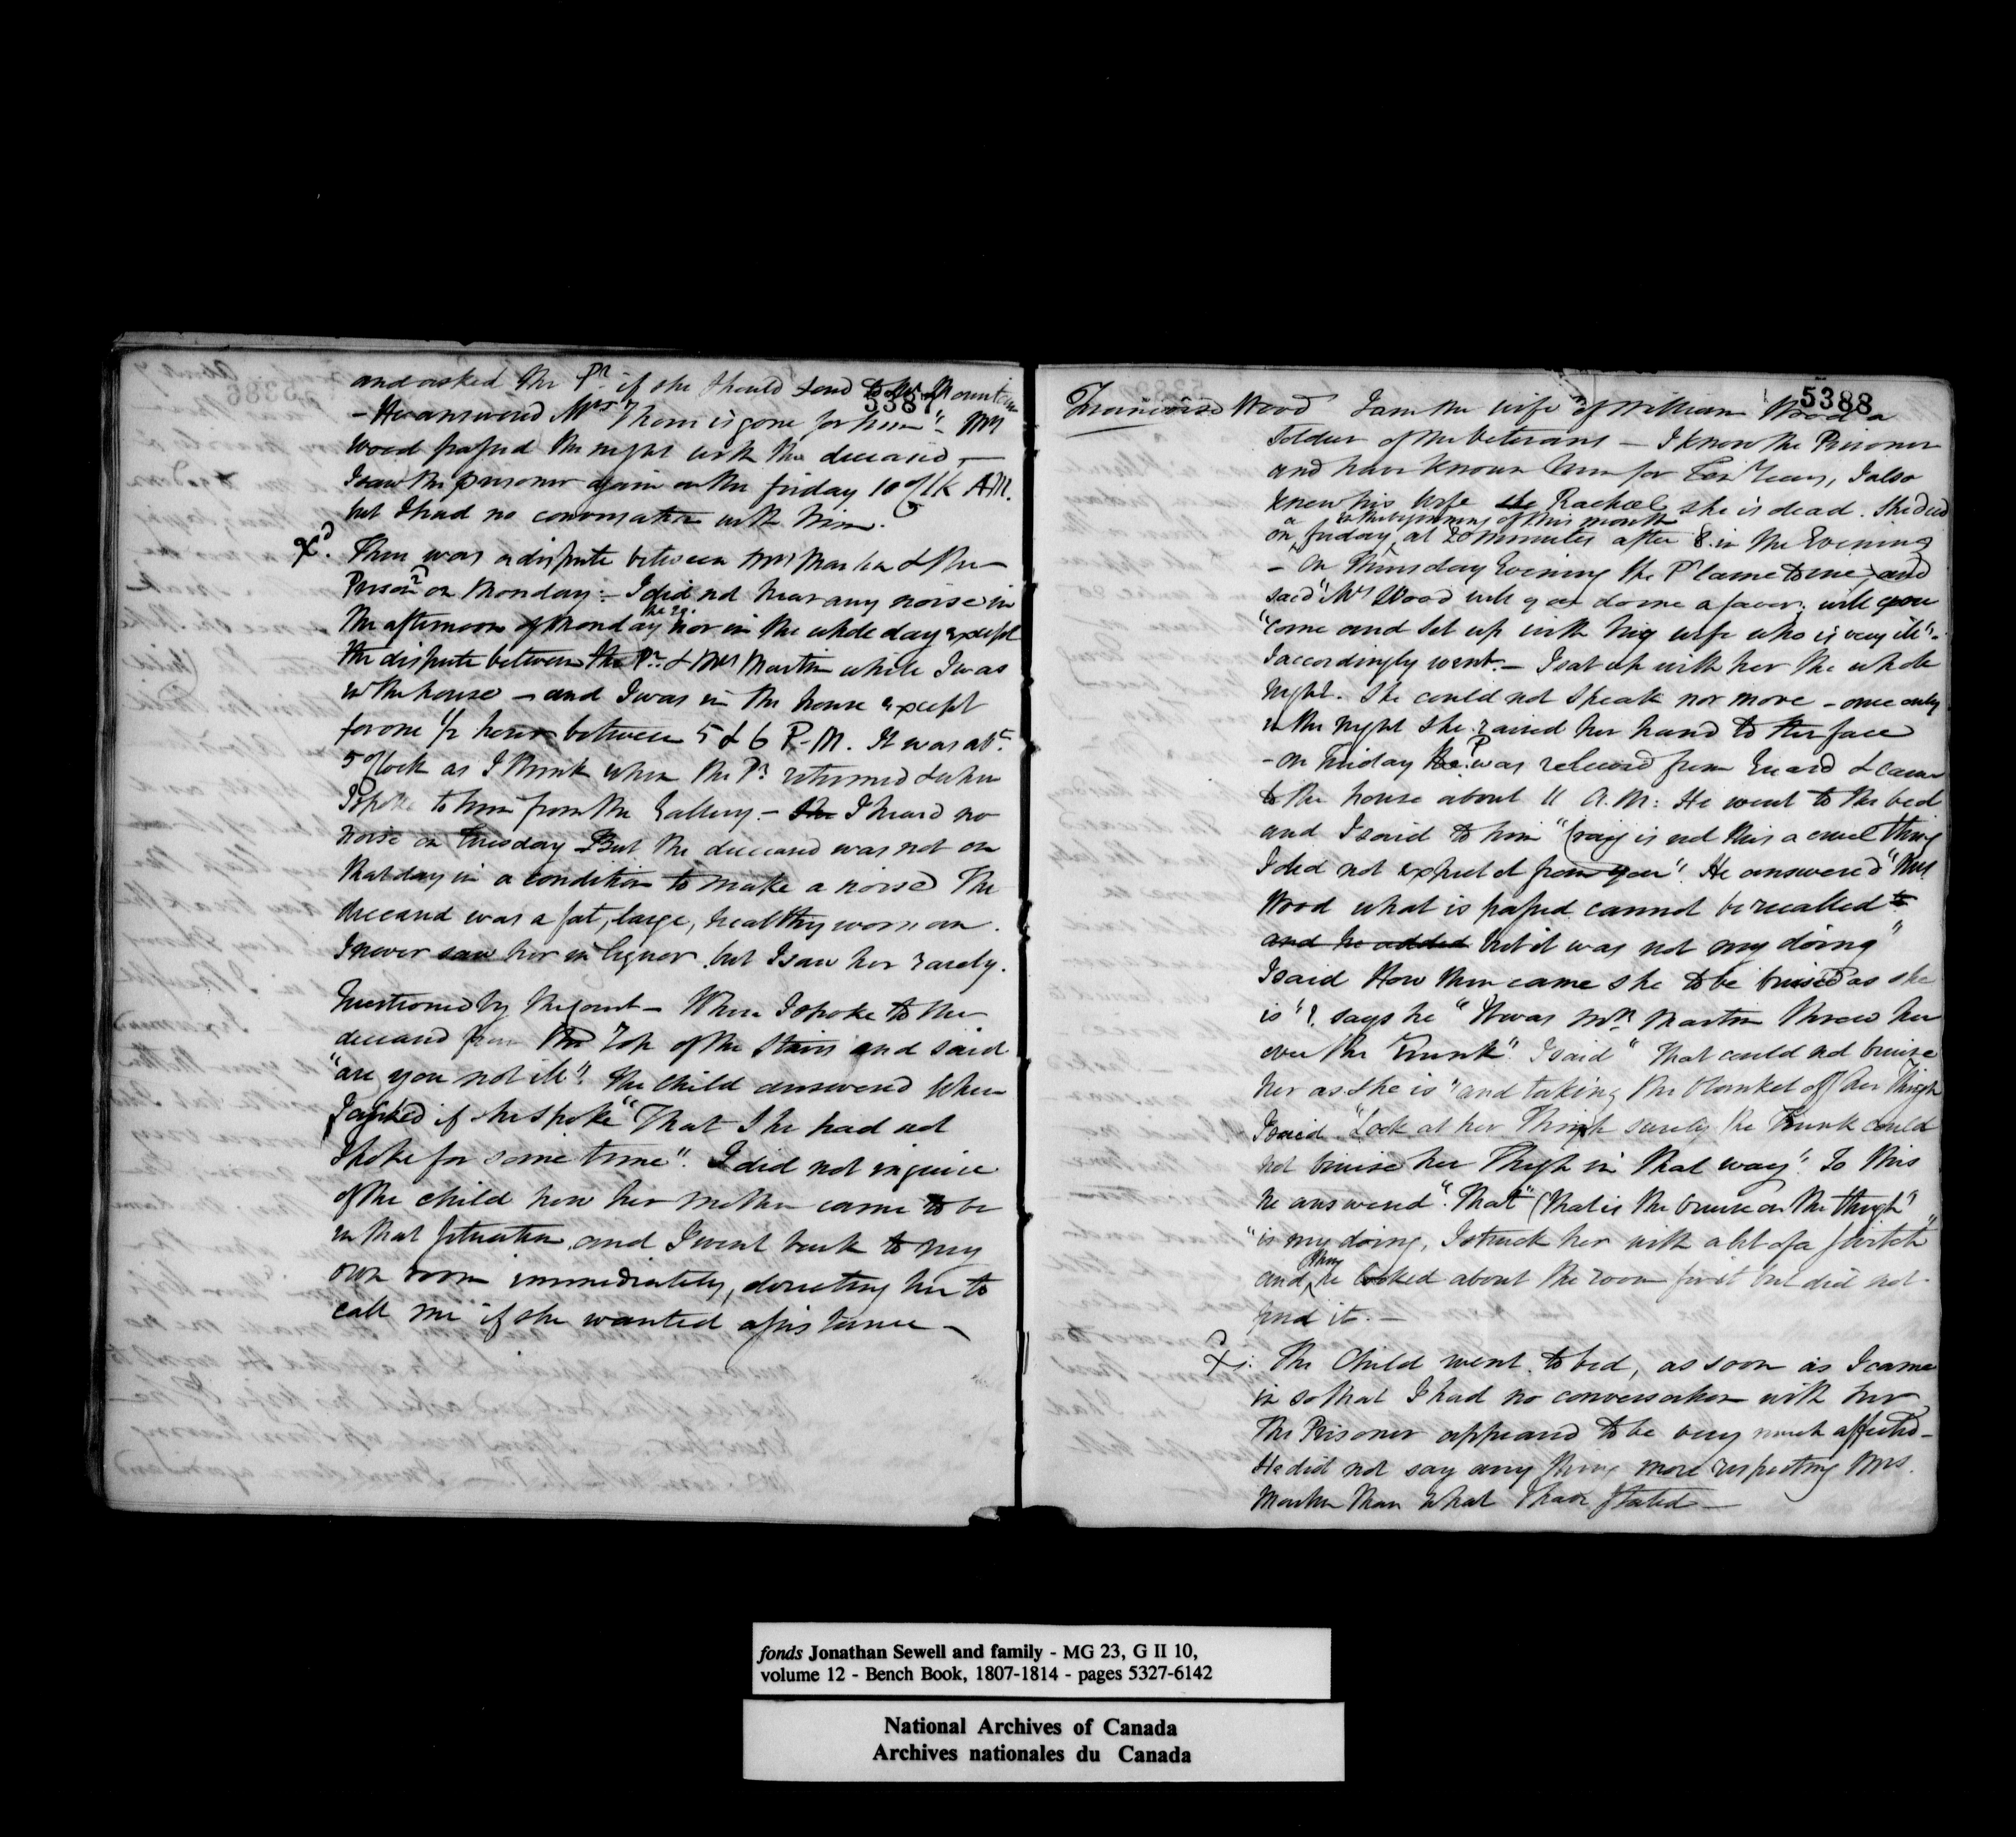 5387
and asked the Pr. if she should send to Mr Mountain
- He answered Mrs Thom is gone for him" - Mrs
Wood passed the night with the deceased, -
I saw the prisoner again on the friday 10 o'Clk AM.
but I had no conversation with him.
Xd. There was a dispute between Mrs Martin & the
Prisonr on Monday: - I did not hear any noise in
the afternoon of Monday the 29. nor in the whole day except
the dispute between the Pr. & Mrs Martin while I was
in the house - and I was in the house except
for one 1/2 hour between 5 & 6 P.M. It was abt.
5 o'Clock as I think when the Pr. returned & when
I spoke to him from the Gallery. - She I heard no
noise on Tuesday But the deceased was not on
that day in a condition to make a noise The
deceased was a fat, large, healthy woman.
I never saw her in liquor. but I saw her rarely.
Questioned by the Court - When I spoke to the
deceased from the Top of the Stairs and said
"are you not ill". The child answered When
I asked if she spoke "That She had not
Spoke for some time". I did not inquire
of the child how her mother came to be
in that situation, and I went back to my
own room immediately, directing her to
call me if she wanted assistance -
5388
Françoise Wood I am the wife of William Wood a
Soldier of the Veterans - I know the Prisoner
and have known him for Years, I also
knew his wife she Rachel she is dead. She died
in the beginning of this month
on a friday at 20 minutes after 8 in the Evening
- On Thursday Evening the Pr came to me, and
said "Mrs Wood will you do me a favor, will you
"come and set up with my wife who is very ill". -
I accordingly went. - I sat up with her the whole
night. She could not speak nor move - once only
in the night she raised her hand to her face
- On Friday the P. was released from Guard & came
to the house about 11 A.M: He went to the bed
and I said to him "Craig is not this a cruel thing
I did not expect it from you". He answered "Mrs
Wood what is passed cannot be recalled to
and he added but it was not my doing"
I said How then came she to be bruised as she
is"? says he "It was Mrs. Martin threw her
over the Trunk". I said "That could not bruise
her as she is" and taking the blanket off her Thigh
I said "Look at her Thigh surely the Trunk could
not bruise her Thigh in that way". To this
he answered. "That" (that is the bruise on the thigh"
"is my doing, I struck her with a bit of a switch"
and then he looked about the room for it but did not
find it. -
Xd. The Child went to bed, as soon as I came
in so that I had no conversation with her
The Prisoner appeared to be very much affected -
He did not say any thing more respecting Mrs.
Martin than what I have stated -
fonds Jonathan Sewell and family - MG 23, G II 10,
volume 12 - Bench Book, 1807-1814 - pages 5327-6142
National Archives of Canada
Archives nationales du Canada